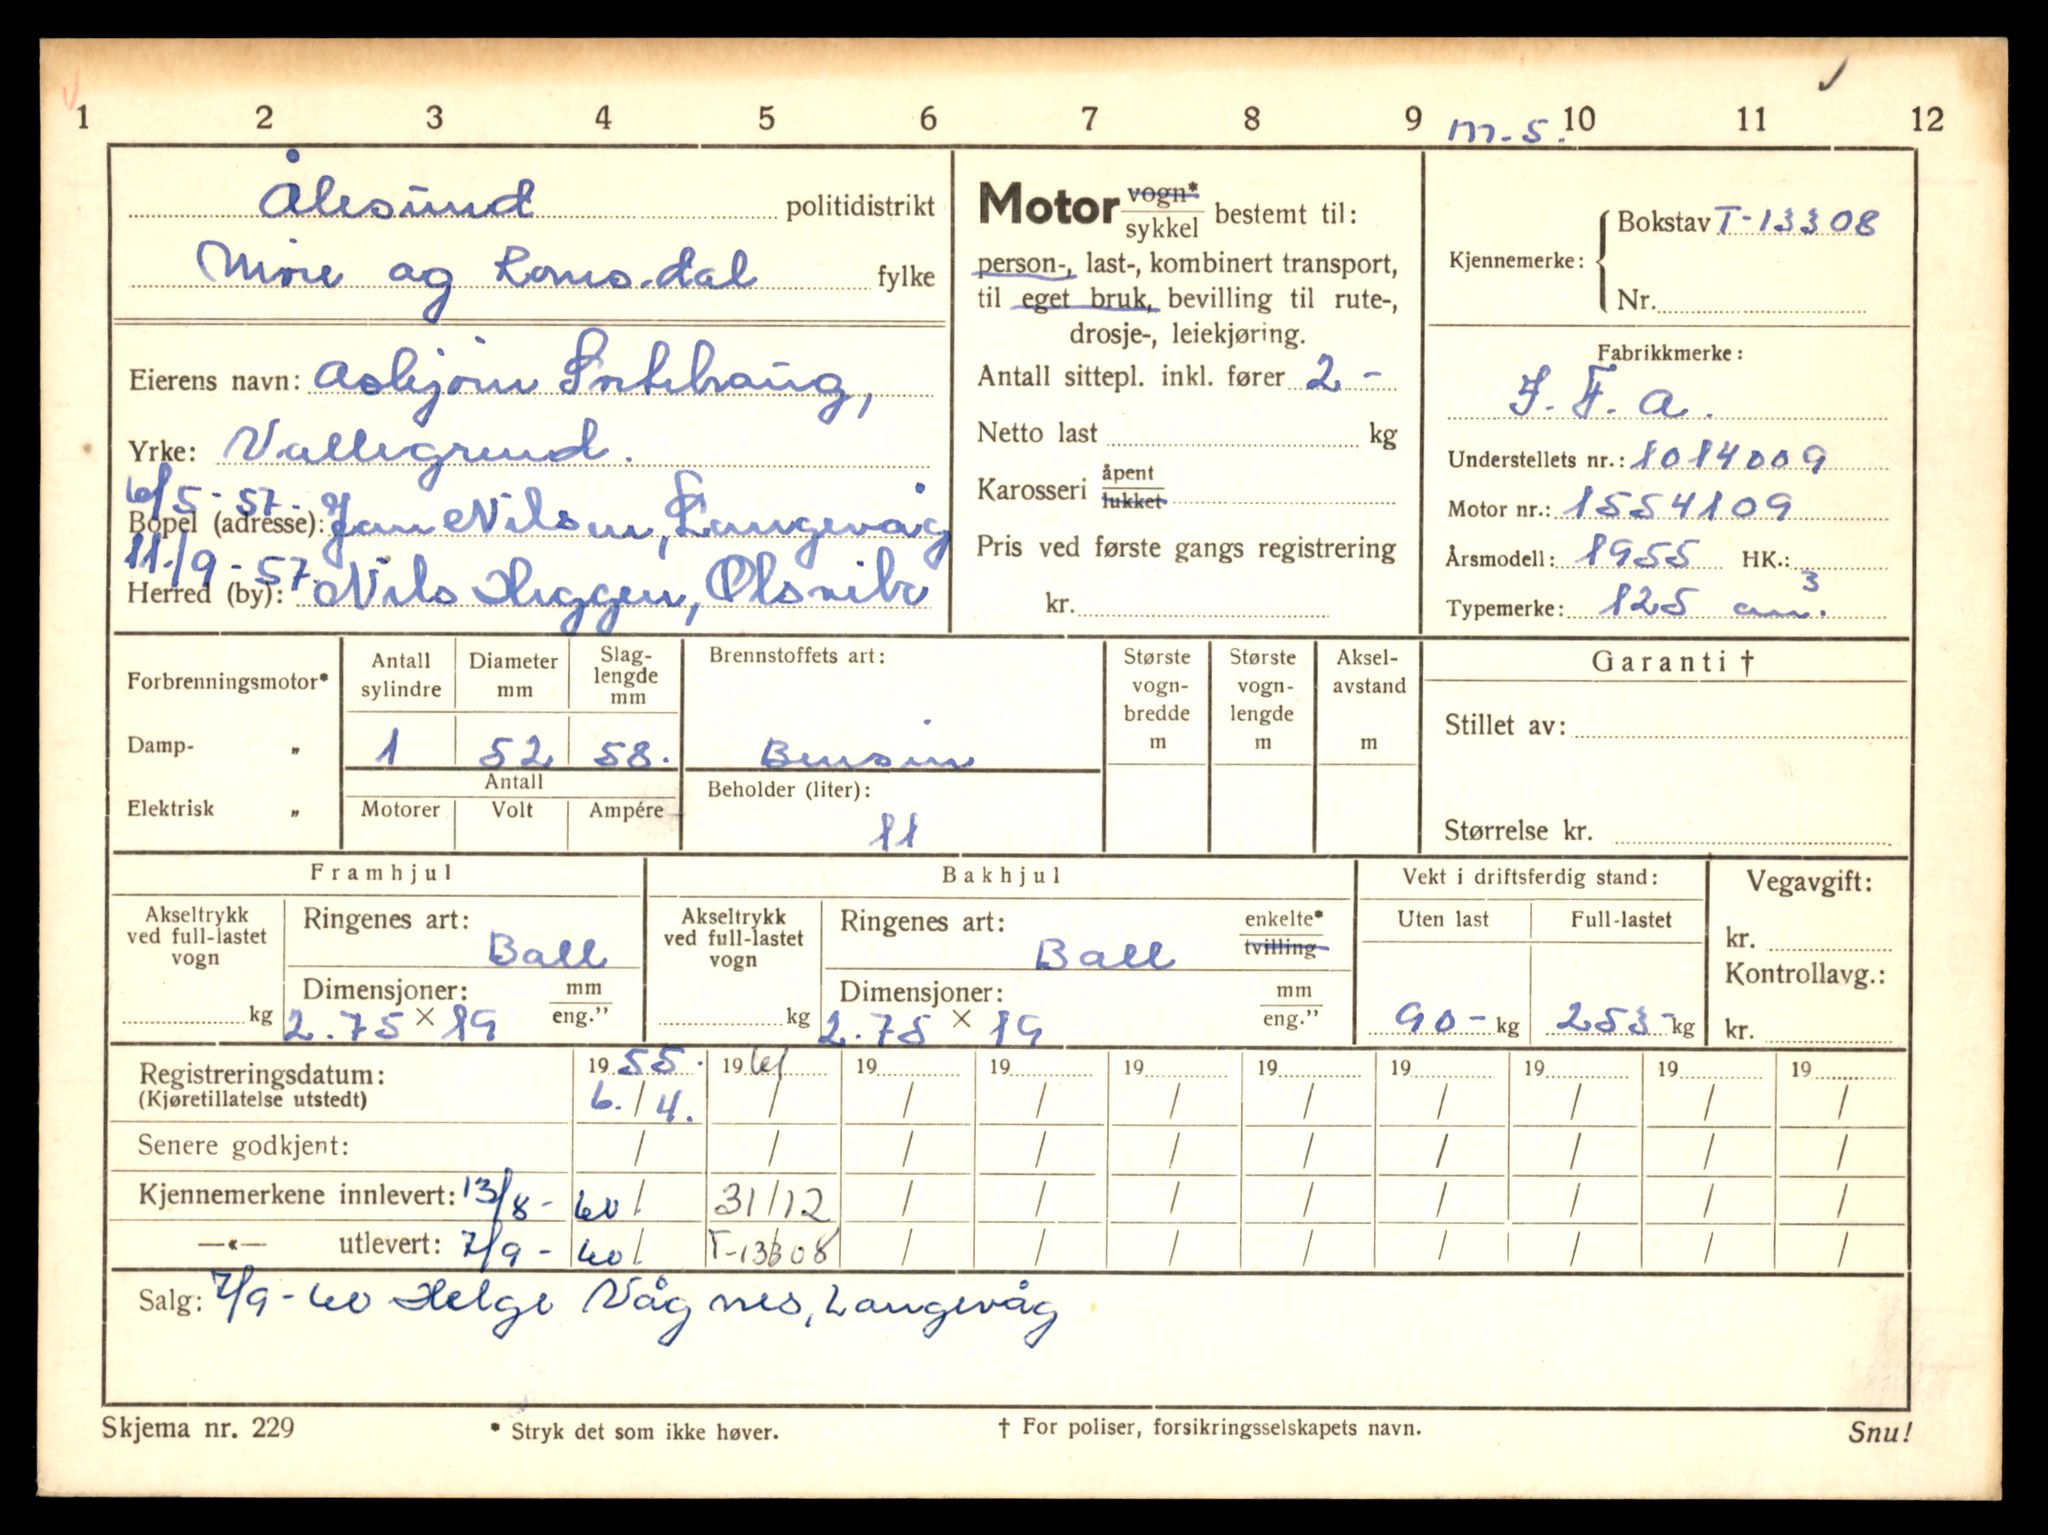 1 2 3 4 5 6 7 8 9 10 11 12
m-s.
Ålesund politidistrikt
Møre og Romsdal fylke
Eierens navn: Asbjørn
Yrke: Vallegrend.
6/5-57.
Bopel (adresse): Jan Nilsen, Langevåg
11./9-57.
Herred (by): Nils Heggen, Olsvika
Motor vogn*
sykkel bestemt til:
person-, last-, kombinert transport,
til eget bruk, bevilling til rute-,
drosje-, leiekjøring.
Antall sittepl. inkl. fører 2 -
Netto last kg
Karosseri åpent
lukket
Pris ved første gangs registrering
kr.
Kjennemerke: Bokstav T-13308
Nr.
Fabrikkmerke:
I. F. A.
Understellets nr.: 1014009
Motor nr.: 1554109
Årsmodell: 1955 HK.:
Typemerke: 125 cm³.
Forbrenningsmotor*
Damp- „
Elektrisk „
Antall sylindre
1
Diameter mm
52
Slag-
lengde
mm
58.
Antall
Motorer Volt Ampére
Brennstoffets art:
Bensin
Beholder (liter):
11
Største
vogn-
bredde
m
Største
vogn-
lengde
m
Aksel-
avstand
m
Garanti †
Stillet av:
Størrelse kr.
Framhjul
Akseltrykk
ved full-lastet
vogn
kg
Ringenes art:
Ball
Dimensjoner: mm
2.75 × 19 eng.”
Bakhjul
Akseltrykk
ved full-lastet
vogn
kg
Ringenes art: enkelte*
Ball tvilling
Dimensjoner: mm
2.75 × 19 eng.”
Vekt i driftsferdig stand:
Uten last Full-lastet
90- kg 253- kg
Vegavgift:
kr.
Kontrollavg.:
kr.
Registreringsdatum: 19 55. 19 61 19 19 19 19 19 19 19 19
(Kjøretillatelse utstedt) 6. / 4. / / / / / / / / /
Senere godkjent: / / / / / / / / / /
Kjennemerkene innlevert: 13/8-60 / 31/12 / / / / / / / /
—«— utlevert: 7/9-60 / T-13308 / / / / / / / /
Salg: 7/9-60 Helge Vågnes, Langevåg
Skjema nr. 229 * Stryk det som ikke høver. † For poliser, forsikringsselskapets navn. Snu!